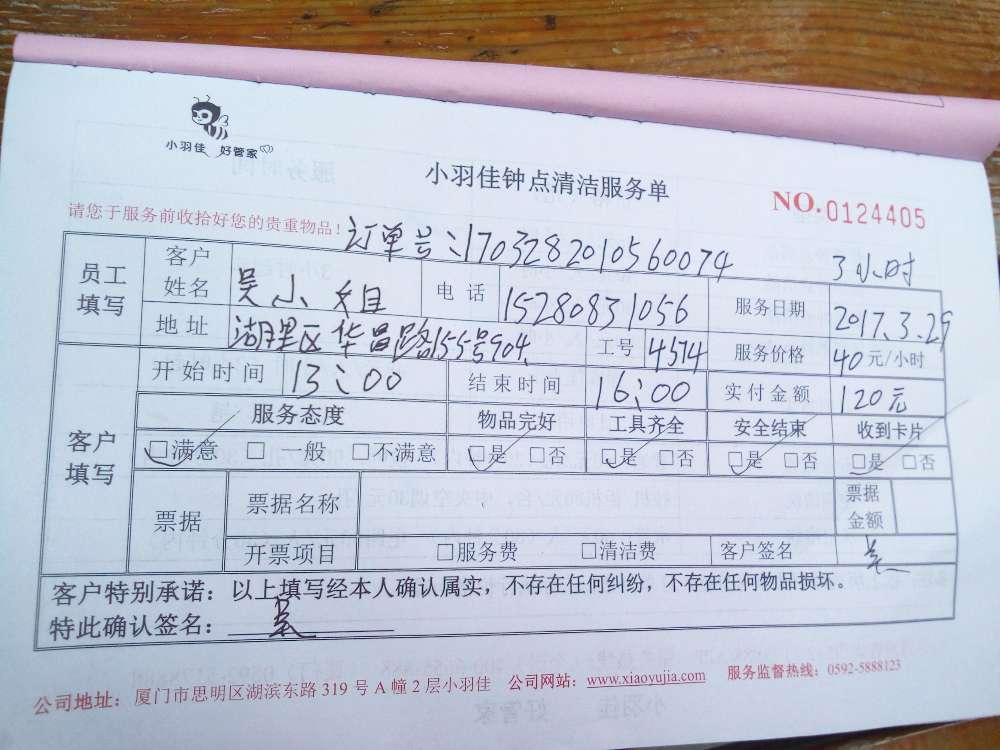 小羽佳 好管家
小羽佳钟点清洁服务单
NO.0124405
请您于服务前收拾好您的贵重物品!
订单号:1703282010560074
3小时
员工填写 客户姓名 吴小姐 电话 15280831056 服务日期 2017.3.29
地址 湖里区华昌路155号904. 工号 4574 服务价格 40元/小时
客户填写 开始时间 13:00 结束时间 16:00 实付金额 120元
服务态度 物品完好 工具齐全 安全结束 收到卡片
□满意 □一般 □不满意 □是 □否 □是 □否 □是 □否 □是 □否
票据 票据名称 票据金额
开票项目 □服务费 □清洁费 客户签名 吴
客户特别承诺:以上填写经本人确认属实,不存在任何纠纷,不存在任何物品损坏。
特此确认签名: 吴
公司地址:厦门市思明区湖滨东路319号A幢2层小羽佳 公司网站:www.xiaoyujia.com 服务监督热线:0592-5888123